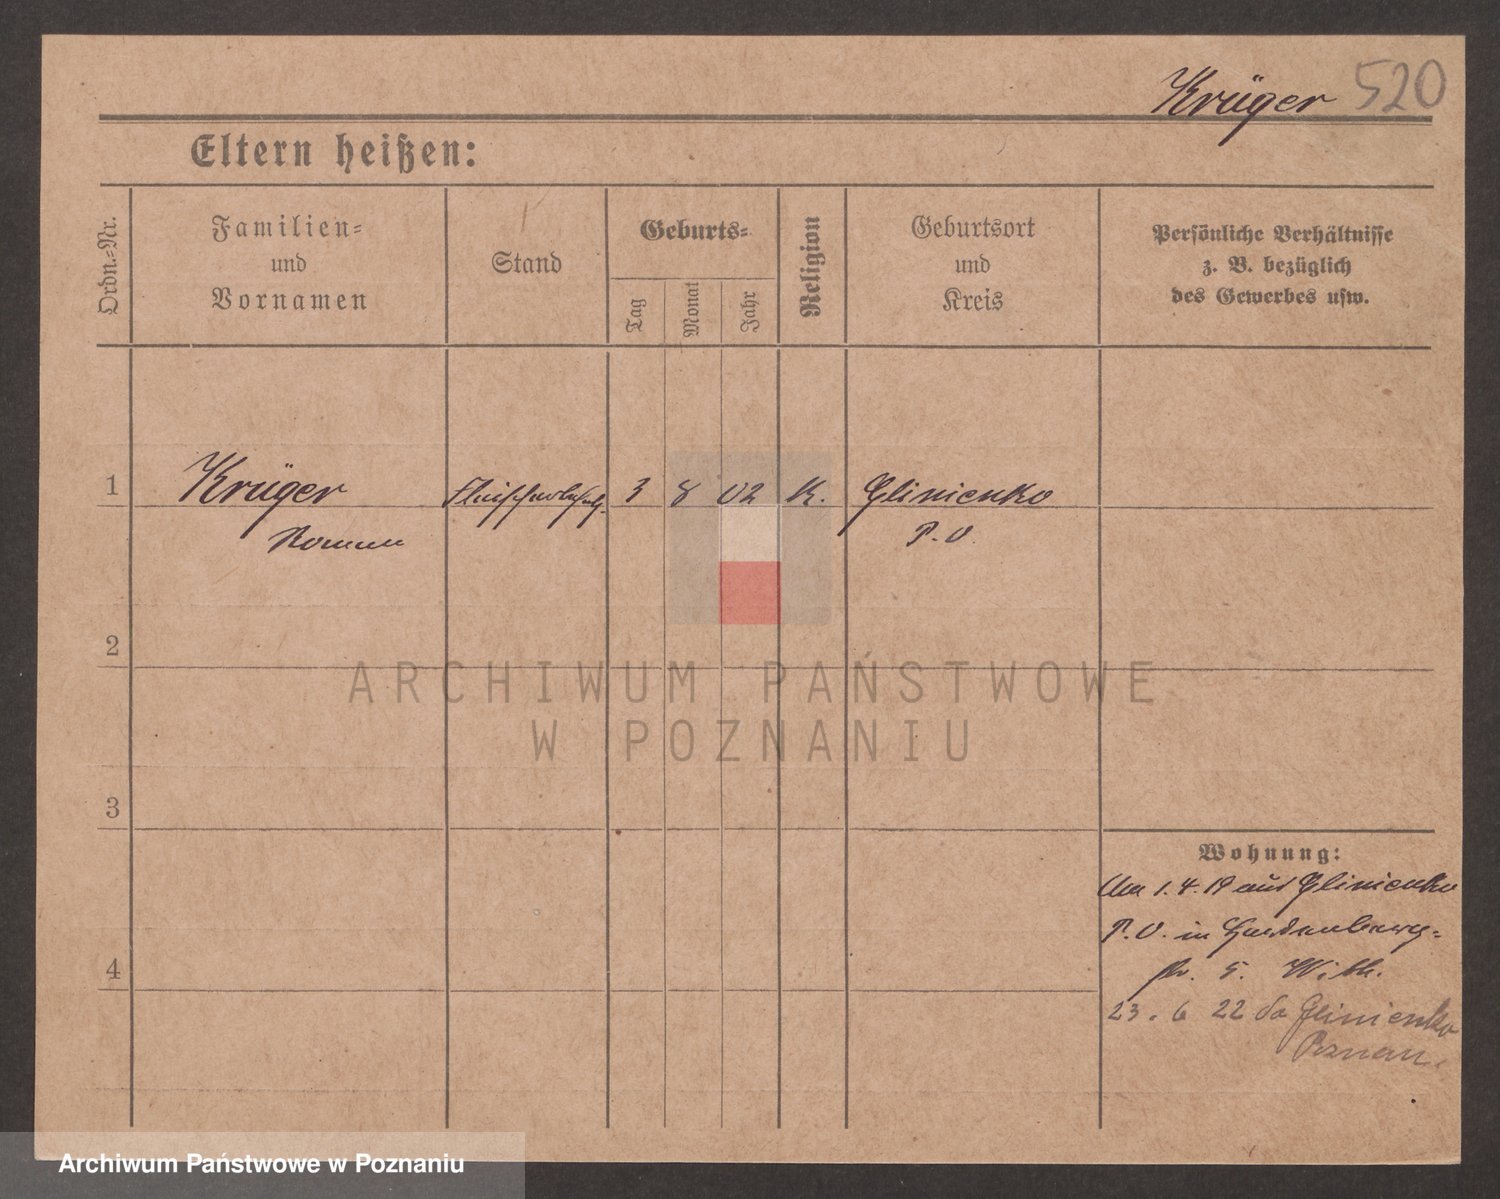 Krüger 520
Eltern heißen:
Ordn.-Nr.
Familien=
und
Vornamen
Stand
Geburts=
Tag
Monat
Jahr
Religion
Geburtsort
und
Kreis
Persönliche Verhältnisse
z. B. bezüglich
des Gewerbes usw.
1 Krüger 3 8 02 K. Glinienko
Roman P. O.
2
3
4
Wohnung:
Am 1.4.19 aus Glinienko
P. O. in Hardenberg=
str. 5. Witk.
23. 6 22 do Glinienko
Poznan.
ARCHIWUM PAŃSTWOWE
W POZNANIU
Archiwum Państwowe w Poznaniu